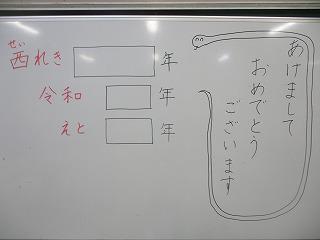 せい
西れき 年
令和 年
えと 年
あけまして
おめでとう
ございます